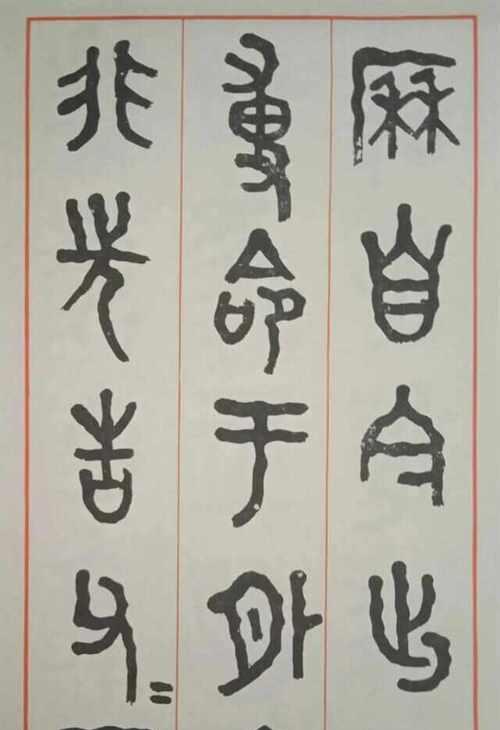 厤自今出
尃命于外
非先告父=